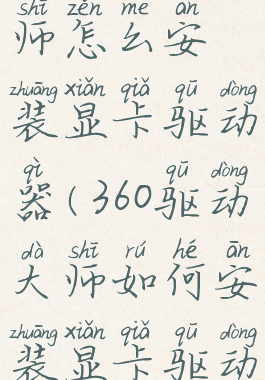 shī zěn me ān
师怎么安
zhuāng xiǎn qiǎ qū dòng
装显卡驱动
qì qū dòng
器(360驱动
dà shī rú hé ān
大师如何安
zhuāng xiǎn qiǎ qū dòng
装显卡驱动